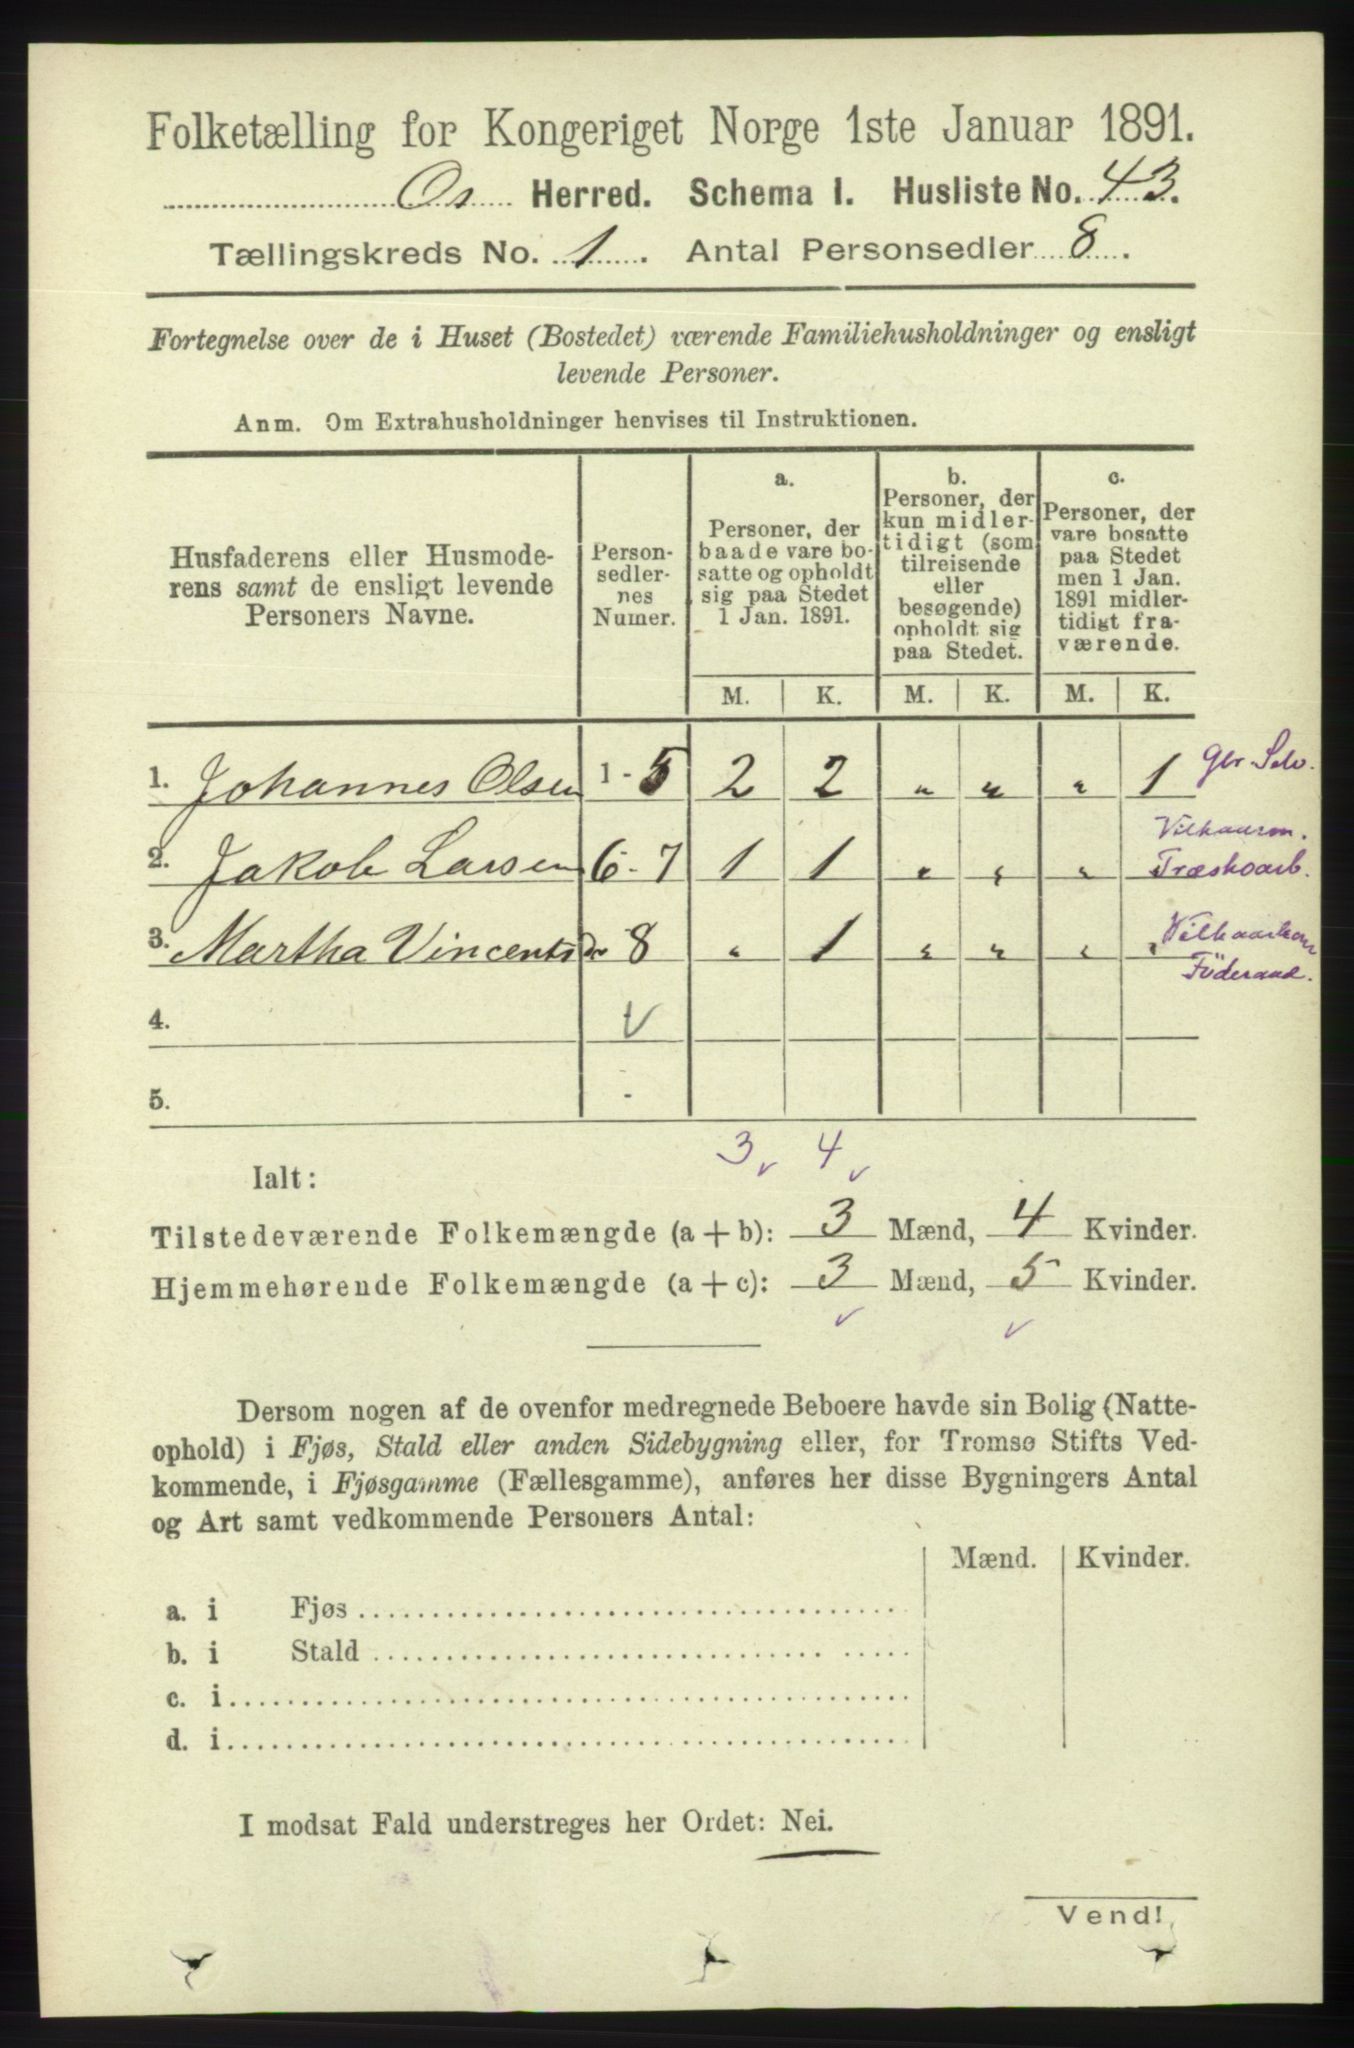 Folketælling for Kongeriget Norge 1ste Januar 1891.
Os Herred. Schema I. Husliste No. 43.
Tællingskreds No. 1. Antal Personsedler 8.
Fortegnelse over de i Huset (Bostedet) værende Familiehusholdninger og ensligt
levende Personer.
Anm. Om Extrahusholdninger henvises til Instruktionen.
Husfaderens eller Husmode-
rens samt de ensligt levende
Personers Navne.
Person-
sedler-
nes
Numer.
a.
Personer, der
baade vare bo-
satte og opholdt
sig paa Stedet
1 Jan. 1891.
b.
Personer, der
kun midler-
tidigt (som
tilreisende
eller
besøgende)
opholdt sig
paa Stedet.
c.
Personer, der
vare bosatte
paa Stedet
men 1 Jan.
1891 midler-
tidigt fra-
værende.
M. K. M. K. M. K.
1. Johannes Olsen 1 - 5 2 2 " " " 1 Gbr. Selv.
Vilkaarm.
2. Jakob Larsen 6 - 7 1 1 " " " " Træskoarb.
3. Martha Vincentsdr 8 " 1 " " " " Vilkaarkone
Föderaad.
4.
5. -
3 4
Ialt:
Tilstedeværende Folkemængde (a + b): 3 Mænd, 4 Kvinder.
Hjemmehørende Folkemængde (a + c): 3 Mænd, 5 Kvinder.
Dersom nogen af de ovenfor medregnede Beboere havde sin Bolig (Natte-
ophold) i Fjøs, Stald eller anden Sidebygning eller, for Tromsø Stifts Ved-
kommende, i Fjøsgamme (Fællesgamme), anføres her disse Bygningers Antal
og Art samt vedkommende Personers Antal:
Mænd. Kvinder.
a. i Fjøs
b. i Stald
c. i
d. i
I modsat Fald understreges her Ordet: Nei.
Vend!